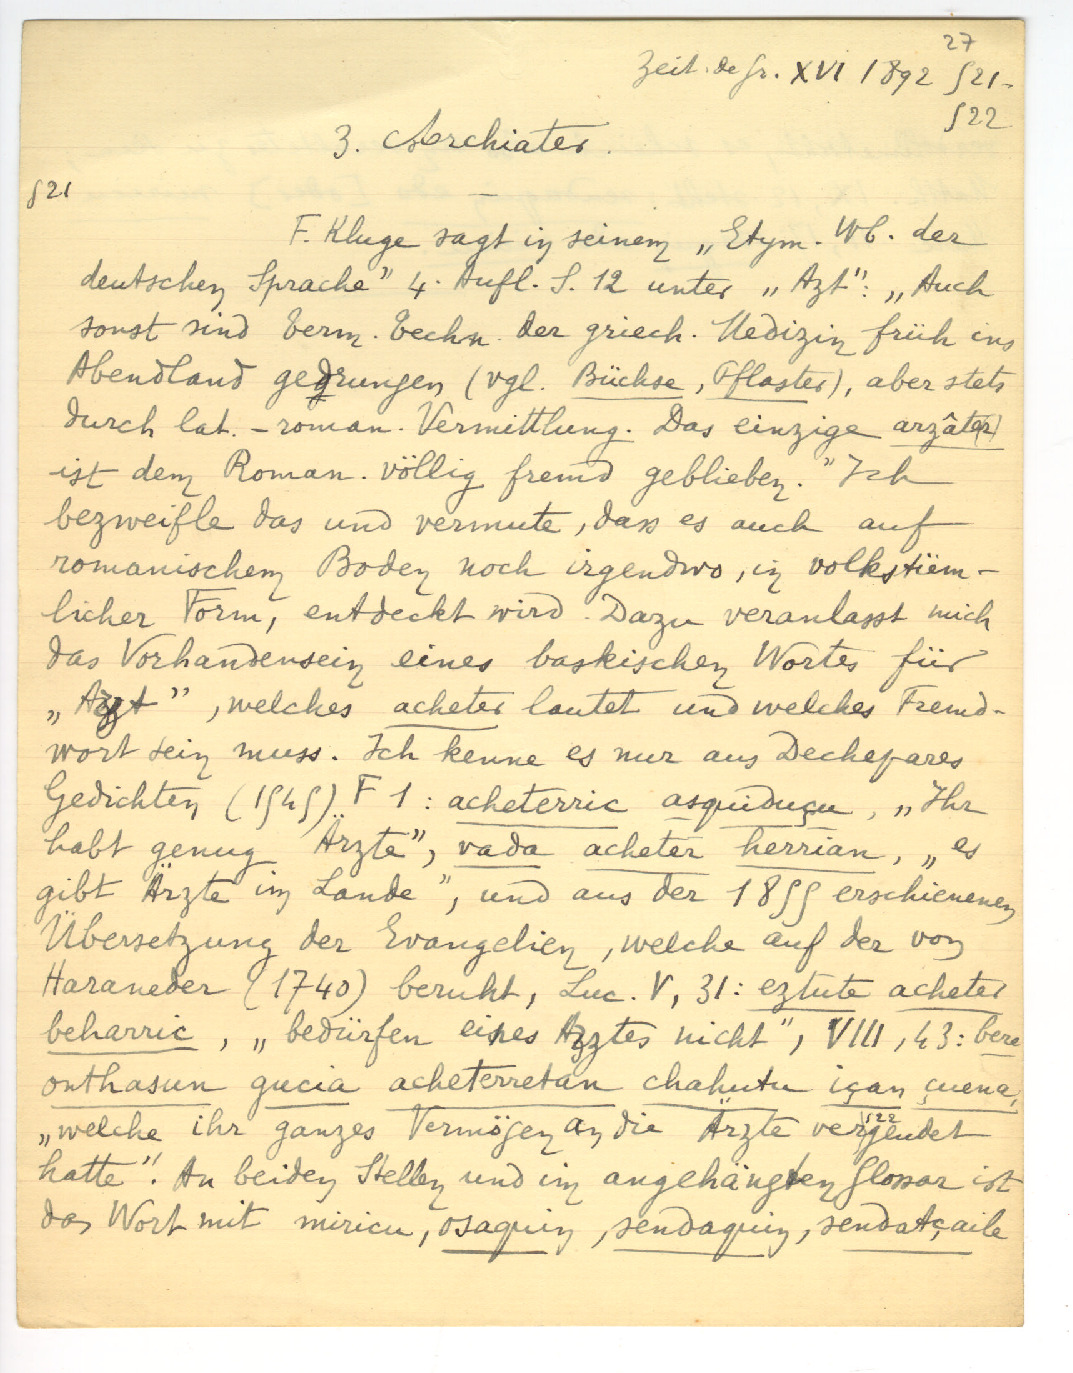 27
Zeit. de Gr. XVI 1892 521-
522
3. Archiater.
521
F. Kluge sagt in seinem „Etym. Wb. der
deutschen Sprache” 4. Aufl. S. 12 unter „Azt”: „Auch
sonst sind Term. Techn. der griech. Medizin früh ins
Abendland gedrungen (vgl. Büchse, Pflaster), aber stets
durch lat. - roman. Vermittlung. Das einzige arzâte(r)
ist dem Roman. völlig fremd geblieben.” Ich
bezweifle das und vermute, dass es auch auf
romanischem Boden noch irgendwo, in volkstüm-
licher Form, entdeckt wird. Dazu veranlasst mich
das Vorhandensein eines baskischen Wortes für
„Arzt”, welches acheter lautet und welches Fremd-
wort sein muss. Ich kenne es nur aus Dechepares
Gedichten (1545) F 1: acheterric asquiduçu, „Ihr
habt genug Ärzte”, vada acheter herrian, „es
gibt Ärzte im Lande”, und aus der 1855 erschienenen
Übersetzung der Evangelien, welche auf der von
Haraneder (1740) beruht, Luc. V, 31: eztute acheter
beharric, „bedürfen eines Arztes nicht”, VIII, 43: bere
onthasun gucia acheterretan chahutu içan çuena,
„welche ihr ganzes Vermögen an die Ärzte vergeudet
522
hatte”. An beiden Stellen und im angehängten Glossar ist
das Wort mit miricu, osaquin, sendaquin, sendatçaile